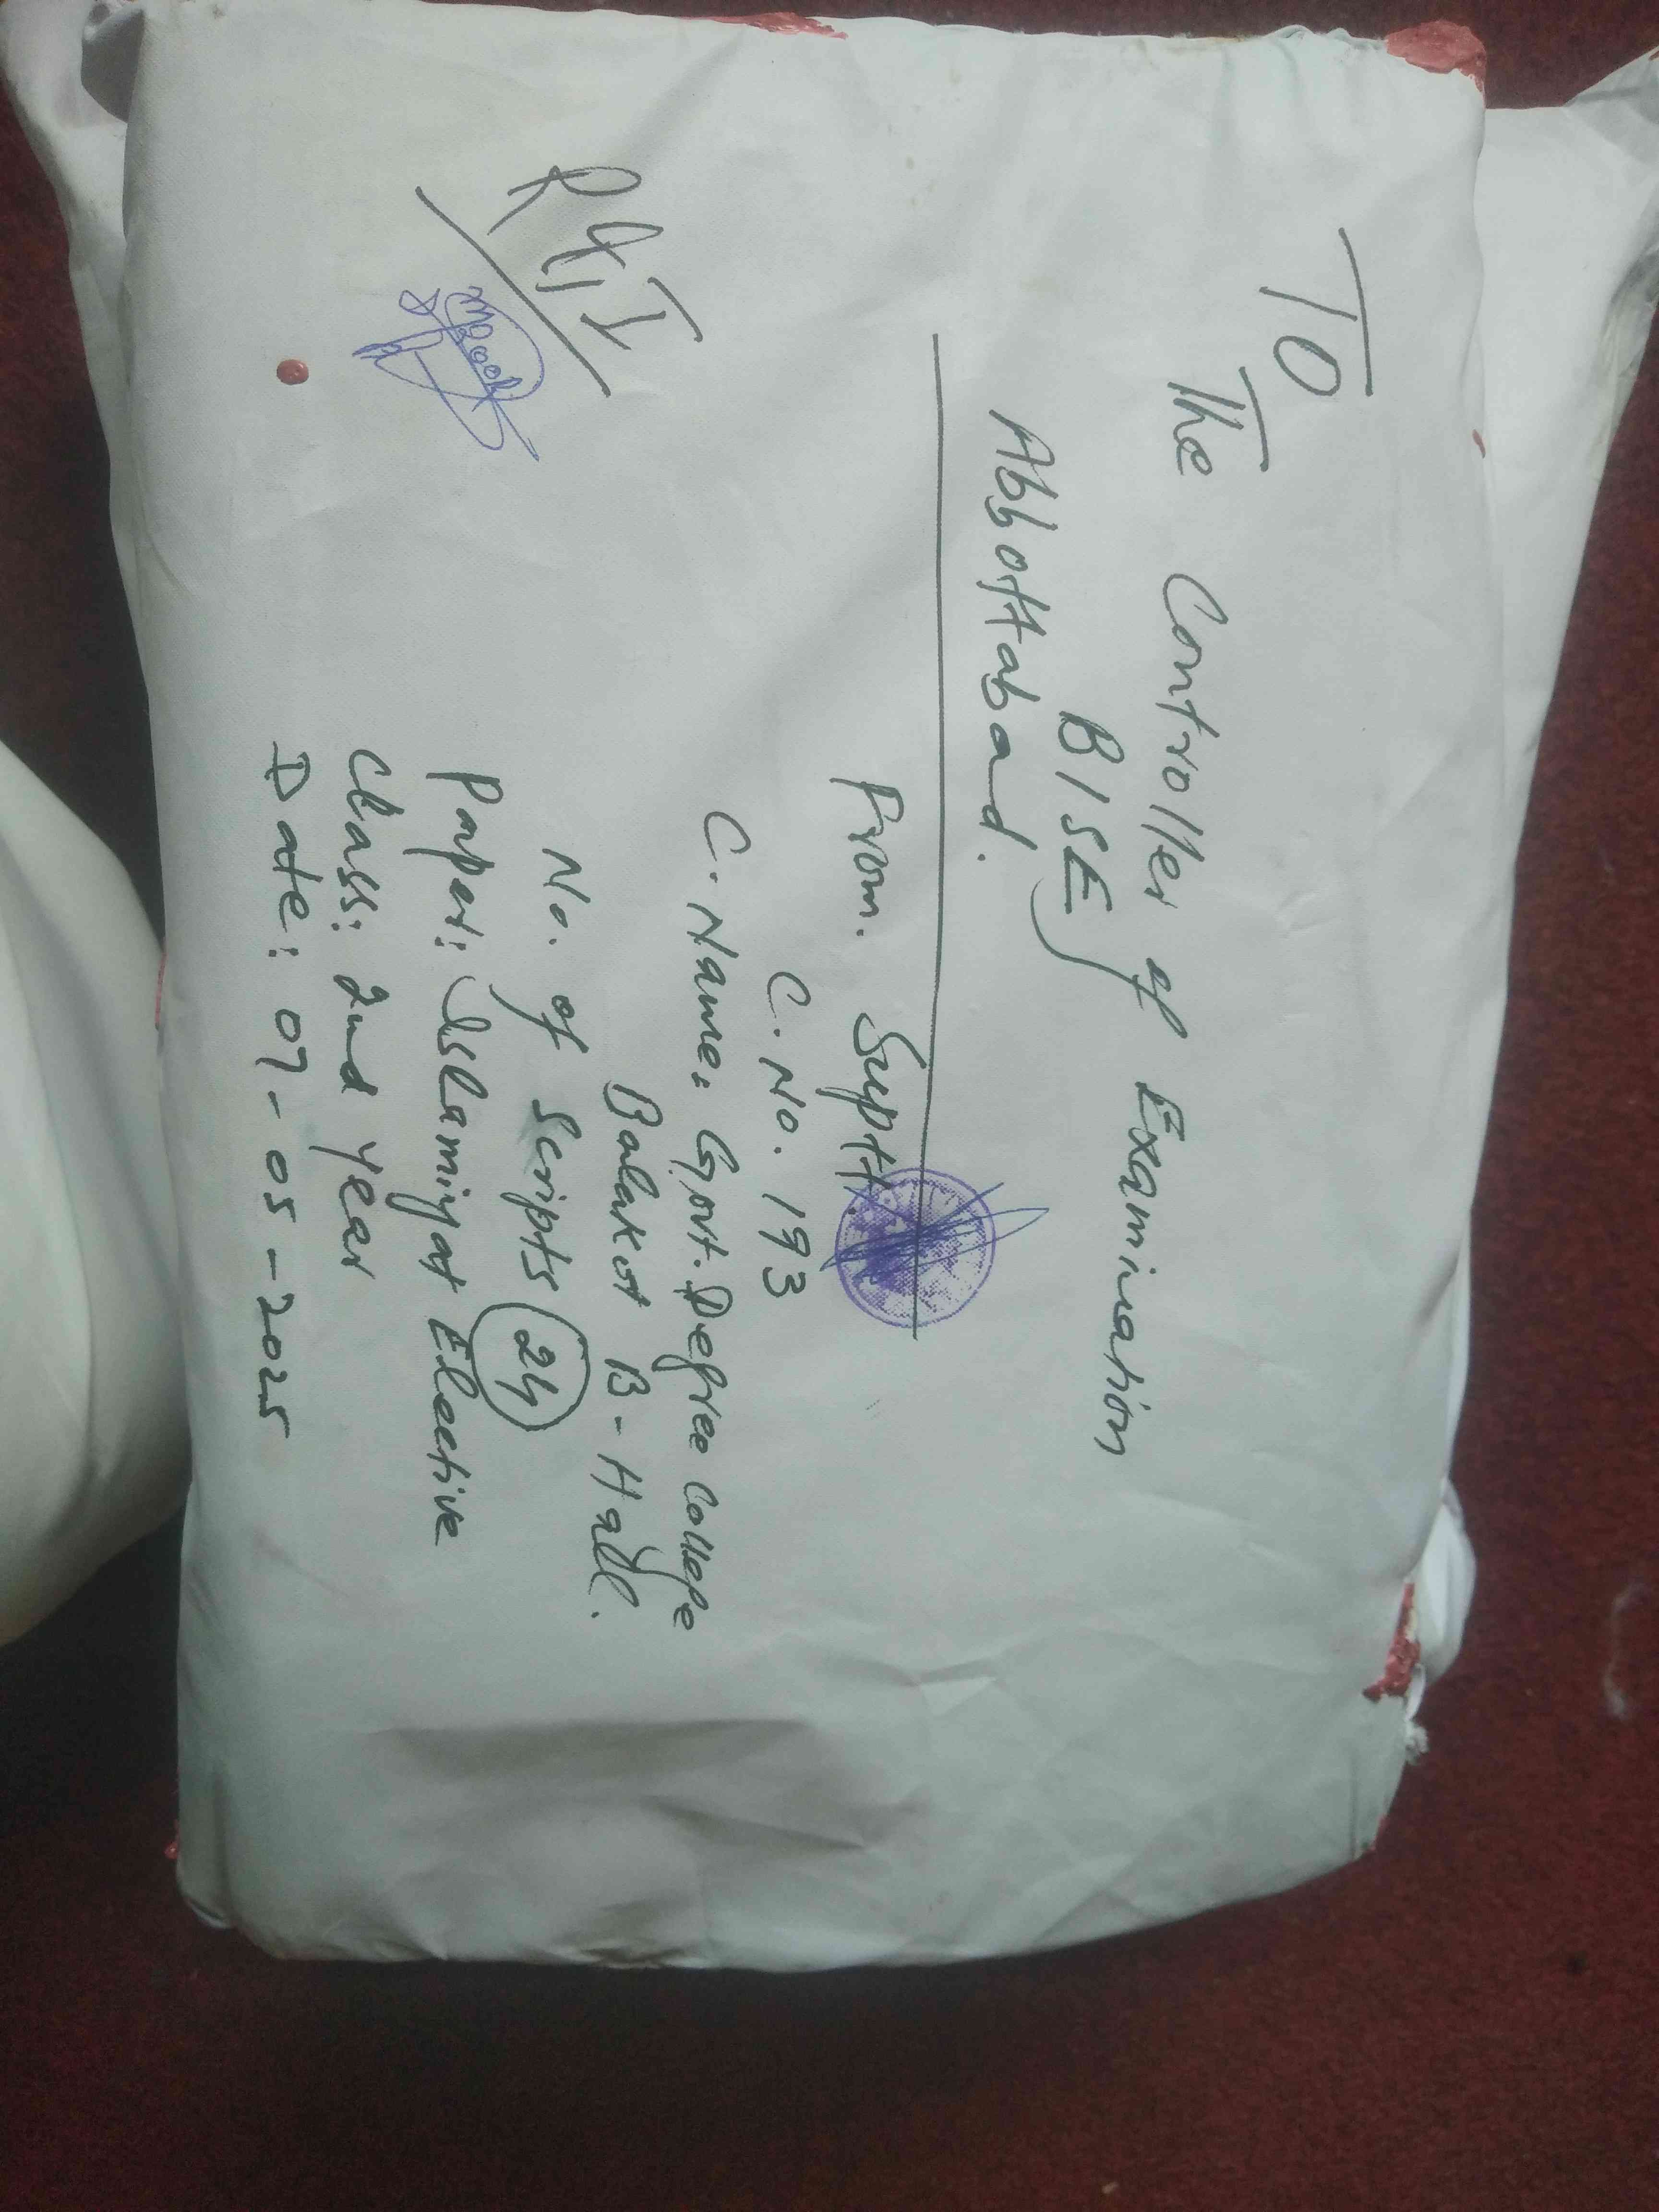 TO
The Controller of Examination
BISE
Abbottabad.
From. Suptt.
C. No. 193
C. Name: Govt. Degree College
Balakot B-Hall.
No. of Scripts 24
Paper: Islamiyat Elective
Class: 2nd Year
Date: 07-05-2025